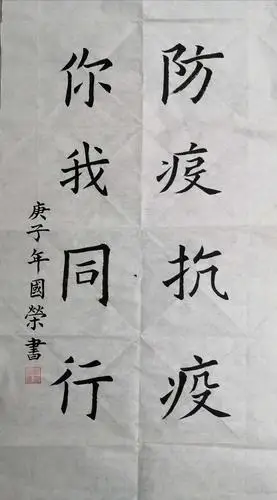 防疫抗疫
你我同行
庚子年國榮書